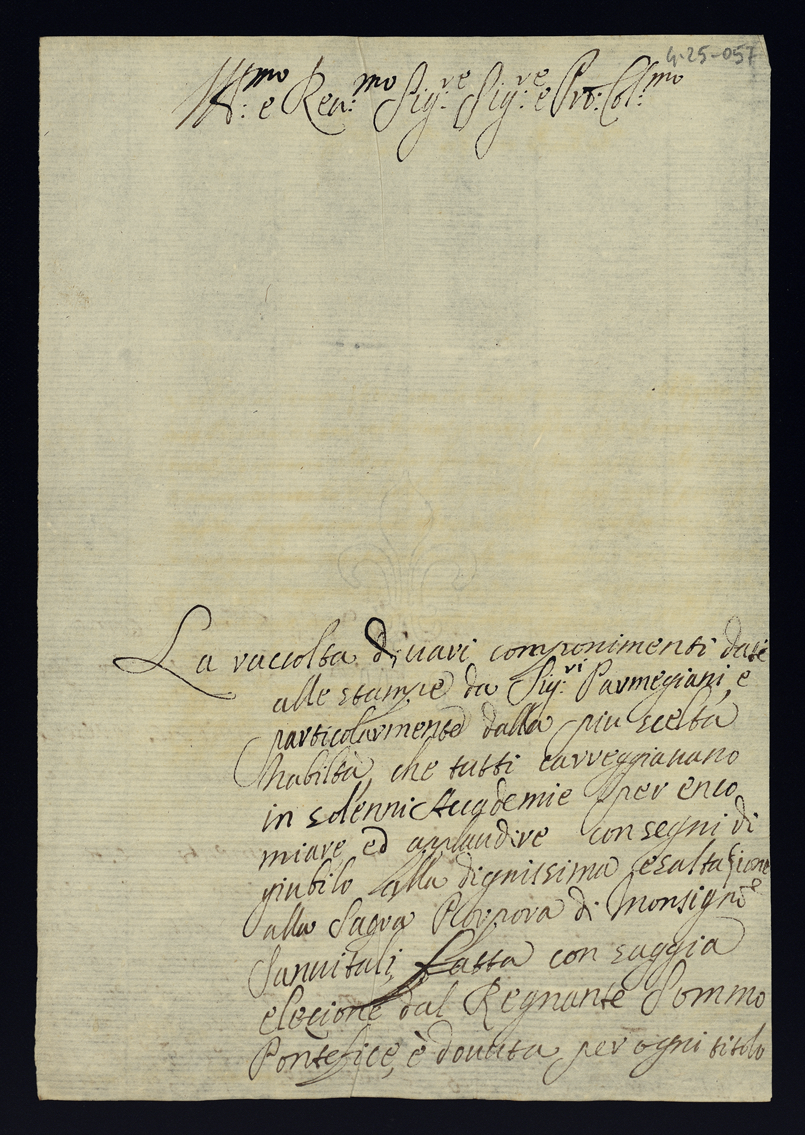 4-25-057
Ill:mo e Reu:mo Sig:re Sig:re e Pro: Col:mo
La raccolta di uari componimenti dati
alle stampe da Sig:ri Parmegiani, e
particolarmente dalla piu scelta
Nobiltà, che tutti carreggiauano
in solenni Accademie per enco
miare, ed applaudire con segni di
giubilo alla dignissima esaltazione
alla Sagra Porpora di Monsignore
Sanuitali fatta con saggia
elezione dal Regnante Sommo
Pontefice, è douuta per ogni titolo